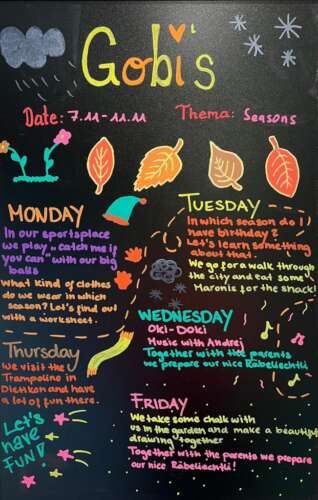 Gobi's
Date: 7.11-11.11
Thema: Seasons
MONDAY
In our sportsplace
we play "catch me if
you can" with our big
balls
What kind of clothes
do we wear in which
season? Let's find out
with a worksheet.
TUESDAY
In which season do I
have birthday?
Let's learn something
about that.
We go for a walk through
the city and eat some
Maronis for the snack!
WEDNESDAY
Oki-Doki
Music with Andrej
Together with the parents
we prepare our nice Räbeliechtli
Thursday
We visit the
Trampolino in
Dietikon and have
a lot of fun there.
FRIDAY
We take some chalk with
us in the garden and make a beautiful
drawing together
Together with the parents we prepare
our nice Räbeliechtli!
Let's
have
FUN!